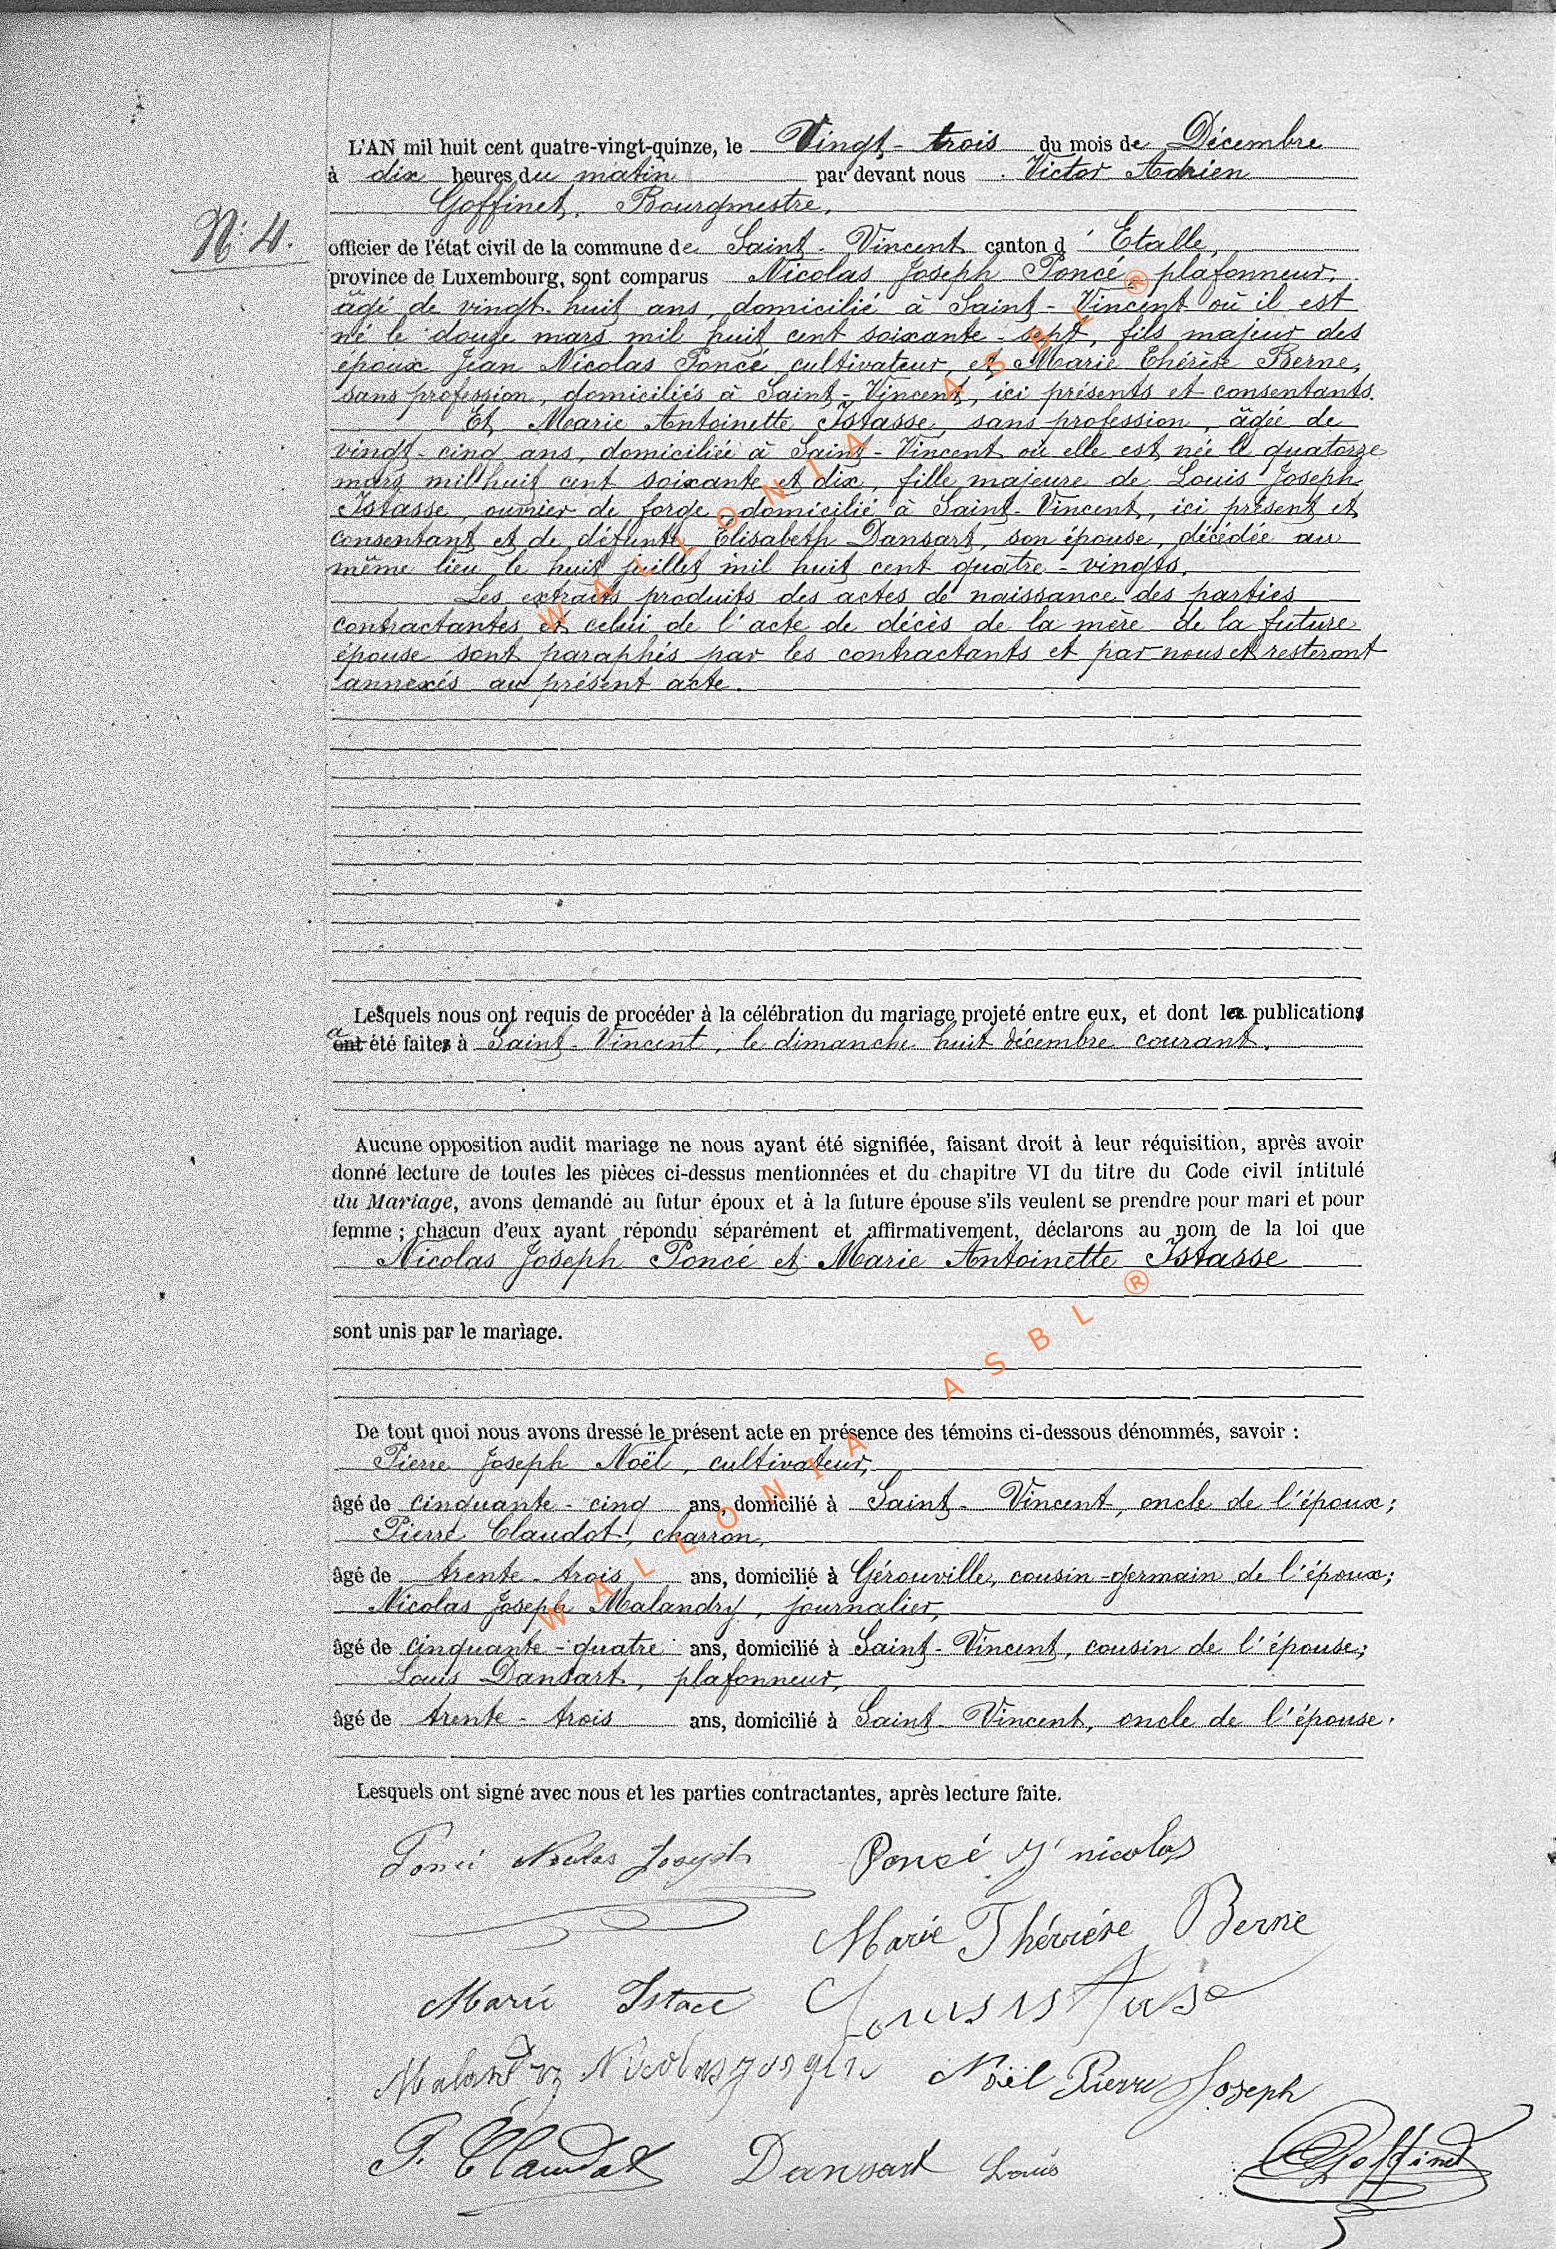 L'AN mil huit cent quatre-vingt-quinze, le Vingt-trois du mois de Décembre
à dix heures du matin par devant nous Victor Adrien
Goffinet, Bourgmestre,
N° 4.
officier de l'état civil de la commune de Saint-Vincent canton d'Etalle,
province de Luxembourg, sont comparus Nicolas Joseph Poncé, plafonneur,
âgé de vingt-huit ans, domicilié à Saint-Vincent où il est
né le douze mars mil huit cent soixante-sept, fils majeur des
époux Jean Nicolas Poncé, cultivateur, et Marie Thérèse Berne,
sans profession, domiciliés à Saint-Vincent, ici présents et consentants.
Et Marie Antoinette Istasse, sans profession, âgée de
vingt-cinq ans, domiciliée à Saint-Vincent où elle est née le quatorze
mars mil huit cent soixante et dix, fille majeure de Louis Joseph
Istasse, ouvrier de forge, domicilié à Saint-Vincent, ici présent et
consentant et de défunte Elisabeth Dansart, son épouse, décédée au
même lieu le huit juillet mil huit cent quatre-vingts.
Les extraits produits des actes de naissance des parties
contractantes et celui de l'acte de décès de la mère de la future
épouse sont paraphés par les contractants et par nous et resteront
annexés au présent acte.
Lesquels nous ont requis de procéder à la célébration du mariage projeté entre eux, et dont la publication
a été faite à Saint-Vincent, le dimanche huit décembre courant.
Aucune opposition audit mariage ne nous ayant été signifiée, faisant droit à leur réquisition, après avoir
donné lecture de toutes les pièces ci-dessus mentionnées et du chapitre VI du titre du Code civil intitulé
du Mariage, avons demandé au futur époux et à la future épouse s'ils veulent se prendre pour mari et pour
femme ; chacun d'eux ayant répondu séparément et affirmativement, déclarons au nom de la loi que
Nicolas Joseph Poncé et Marie Antoinette Istasse
sont unis par le mariage.
De tout quoi nous avons dressé le présent acte en présence des témoins ci-dessous dénommés, savoir :
Pierre Joseph Noël, cultivateur,
âgé de cinquante-cinq ans, domicilié à Saint-Vincent, oncle de l'époux;
Pierre Claudot, charron,
âgé de trente-trois ans, domicilié à Gérouville, cousin-germain de l'époux;
Nicolas Joseph Malandry, journalier,
âgé de cinquante-quatre ans, domicilié à Saint-Vincent, cousin de l'épouse;
Louis Dansart, plafonneur,
âgé de trente-trois ans, domicilié à Saint-Vincent, oncle de l'épouse.
Lesquels ont signé avec nous et les parties contractantes, après lecture faite.
Poncé Nicolas Joseph Poncé J nicolas
Marie Thérrèse Berne
Marie Istace Louis Istasse
Malandry Nicolas Joseph Noël Pierre Joseph
P. Claudot Dansart Louis Goffinet
WALLONIA ASBL ®
WALLONIA ASBL ®